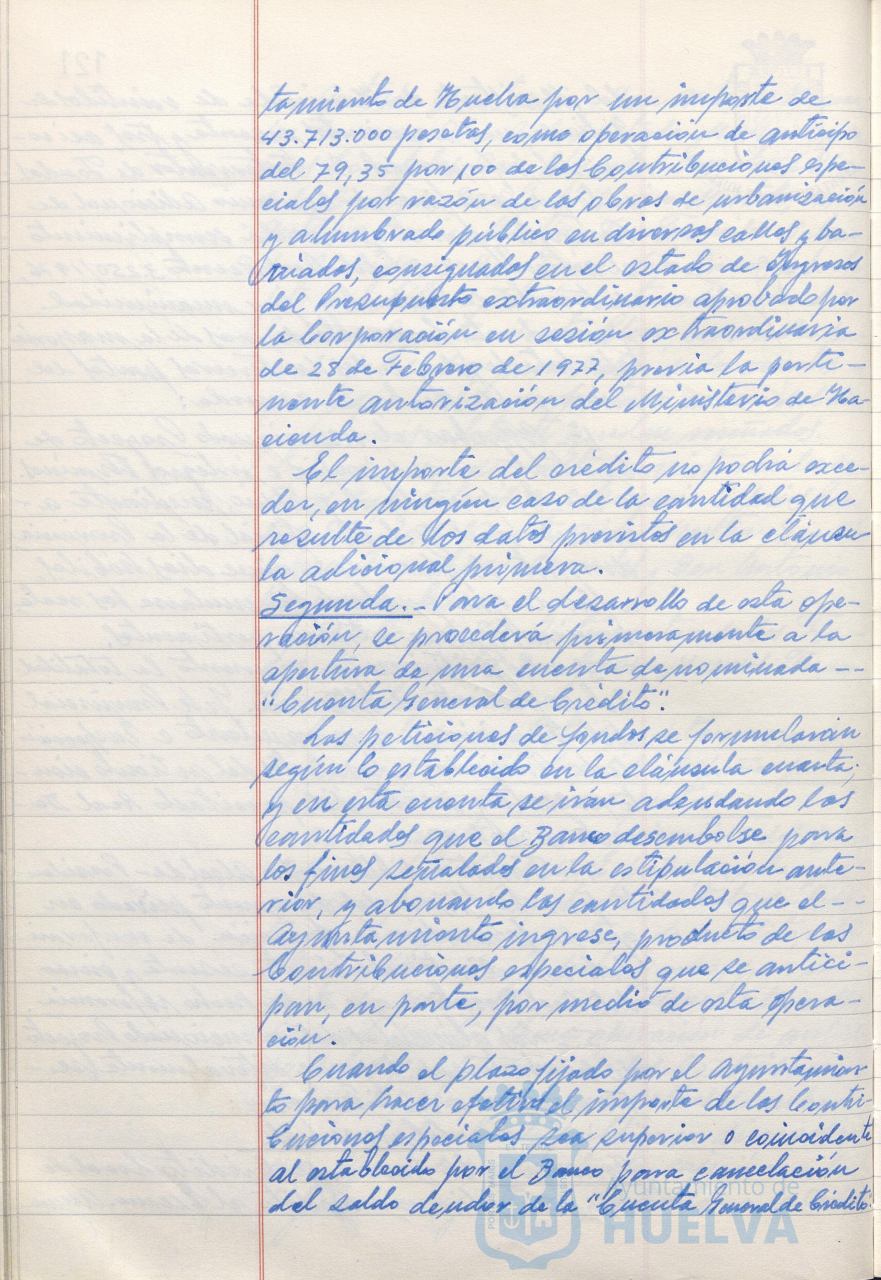 tamiento de Huelva por un importe de
43.713.000 pesetas, como operación de anticipo
del 79,35 por 100 de las Contribuciones espe-
ciales por razón de las obras de urbanización
y alumbrado público en diversas calles y ba-
rriadas, consignadas en el estado de Ingresos
del Presupuesto extraordinario aprobado por
la Corporación en sesión extraordinaria
de 28 de Febrero de 1977, previa la perti-
nente autorización del Ministerio de Ha-
cienda.
El importe del crédito no podrá exce-
der, en ningún caso de la cantidad que
resulte de los datos previstos en la cláusu-
la adicional primera.
Segunda.- Para el desarrollo de esta ope-
ración, se procederá primeramente a la
apertura de una cuenta denominada --
"Cuenta General de Crédito".
Las peticiones de fondos se formularán
según lo establecido en la cláusula cuarta;
y en esta cuenta se irán adeudando las
cantidades que el Banco desembolse para
los fines señalados en la estipulación ante-
rior, y abonando las cantidades que el --
Ayuntamiento ingrese, producto de las
Contribuciones especiales que se antici-
pan, en parte, por medio de esta opera-
ción.
Cuando el plazo fijado por el Ayuntamien-
to para hacer efectivo el importe de las Contri-
buciones especiales sea superior o coincidente
al establecido por el Banco para cancelación
del saldo deudor de la "Cuenta General de Crédito"
Ayuntamiento de
HUELVA